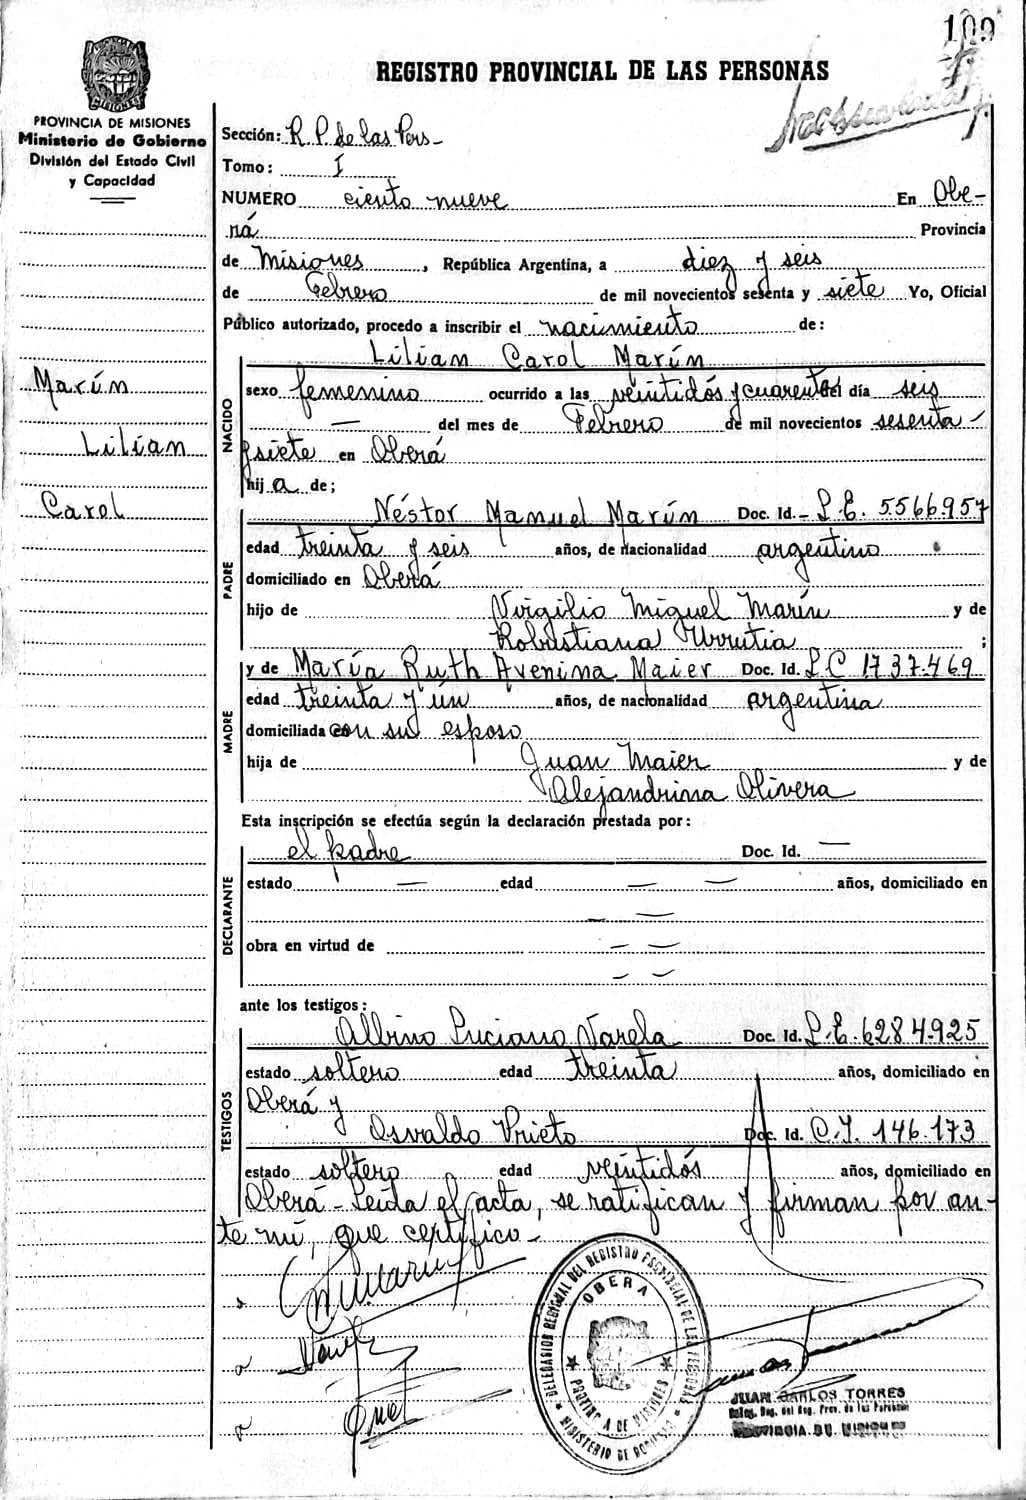 109
REGISTRO PROVINCIAL DE LAS PERSONAS
PROVINCIA DE MISIONES
Ministerio de Gobierno
División del Estado Civil
y Capacidad
Sección: R.P. de las Pers-
Tomo: I
NUMERO ciento nueve En Obe-
rá Provincia
de Misiones, República Argentina, a diez y seis
de Febrero de mil novecientos sesenta y siete Yo, Oficial
Público autorizado, procedo a inscribir el nacimiento de:
Lilian Carol Marín
Marín
Lilian
Carol
NACIDO
sexo femenino ocurrido a las veintidós y cuarenta del día seis
— del mes de Febrero de mil novecientos sesenta-
y siete en Oberá
hija de;
PADRE
Néstor Manuel Marín Doc. Id. - L.E. 5566957
edad treinta y seis años, de nacionalidad argentino
domiciliado en Oberá
hijo de Virgilio Miguel Marín y de
Robustiana Urrutia ;
MADRE
y de María Ruth Avenina Maier Doc. Id. L.C 1737.469
edad treinta y un años, de nacionalidad argentina
domiciliada con su esposo
hija de Juan Maier y de
Alejandrina Olivera
Esta inscripción se efectúa según la declaración prestada por:
DECLARANTE
el padre Doc. Id. —
estado — edad — — años, domiciliado en
— —
obra en virtud de — —
— —
ante los testigos:
TESTIGOS
Albino Luciano Varela Doc. Id. L.E. 6284925
estado soltero edad treinta años, domiciliado en
Oberá y
Osvaldo Prieto Doc. Id. C.I. 146.173
estado soltero edad veintidós años, domiciliado en
Oberá - Leída el acta, se ratifican y firman por an-
te mí, que certifico-
DELEGACION REGIONAL DEL REGISTRO PROVINCIAL DE LAS PERSONAS
OBERA
PROVINCIA DE MISIONES
MINISTERIO DE GOBIERNO
JUAN CARLOS TORRES
Deleg. Reg. del Reg. Prov. de las Personas
PROVINCIA DE MISIONES